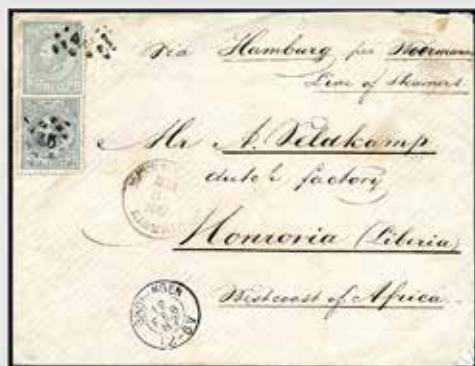 Via Hamburg per Woermann
Line of Steamers.
Mr A. Veldkamp
dutch factory
Monrovia (Liberia)
Westcoast of Africa.